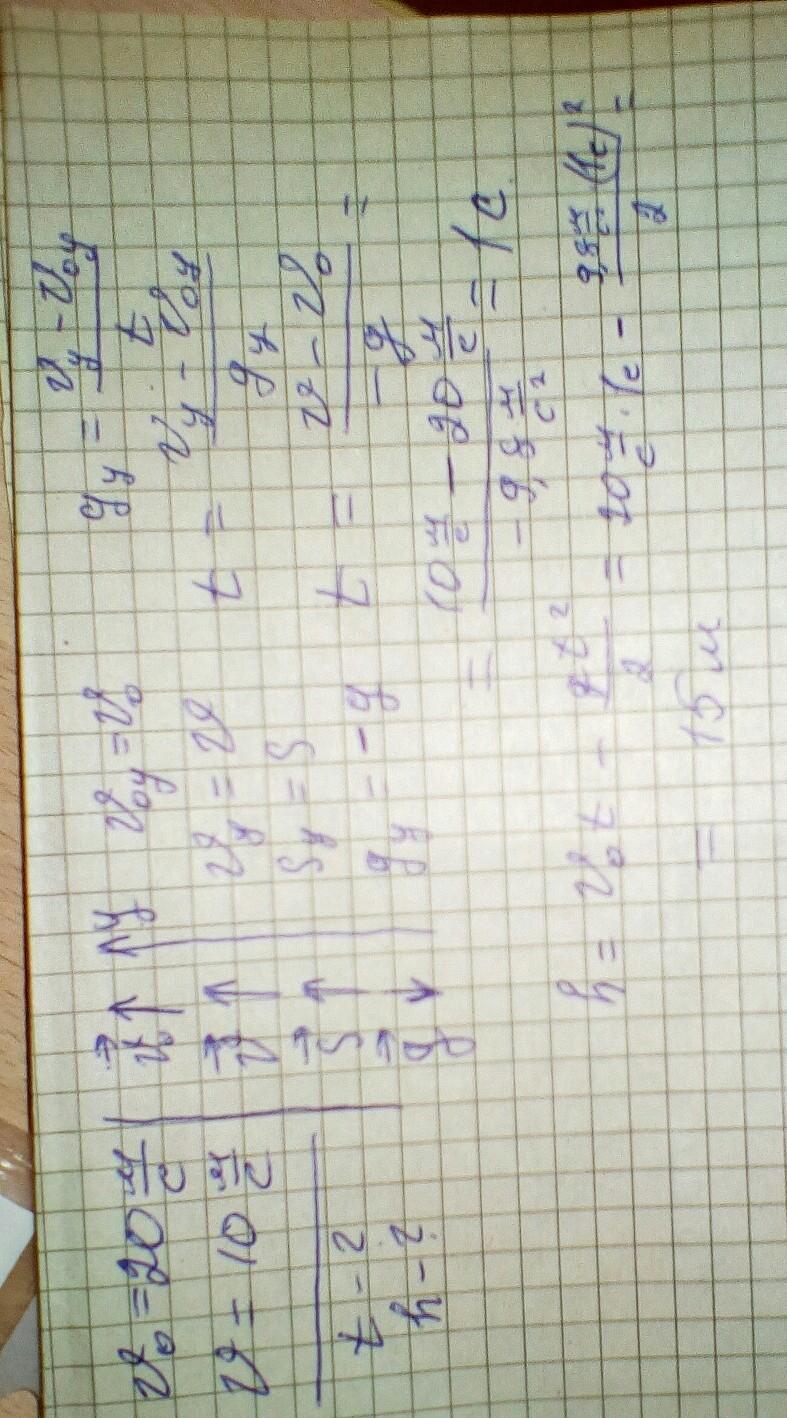 v₀ = 20 м/с
v = 10 м/с
t - ?
h - ?
v⃗₀ ↑
v⃗ ↑
s⃗ ↑
g⃗ ↓
y
v₀y = v₀
vy = v
sy = s
gy = -g
gy = (vy - v₀y)/t
t = (vy - v₀y)/gy
t = (v - v₀)/(-g) =
= (10 м/с - 20 м/с)/(-9,8 м/с²) = 1 с
h = v₀t - gt²/2 = 20 м/с · 1с - (9,8 м/с² (1с)²)/2 =
= 15 м